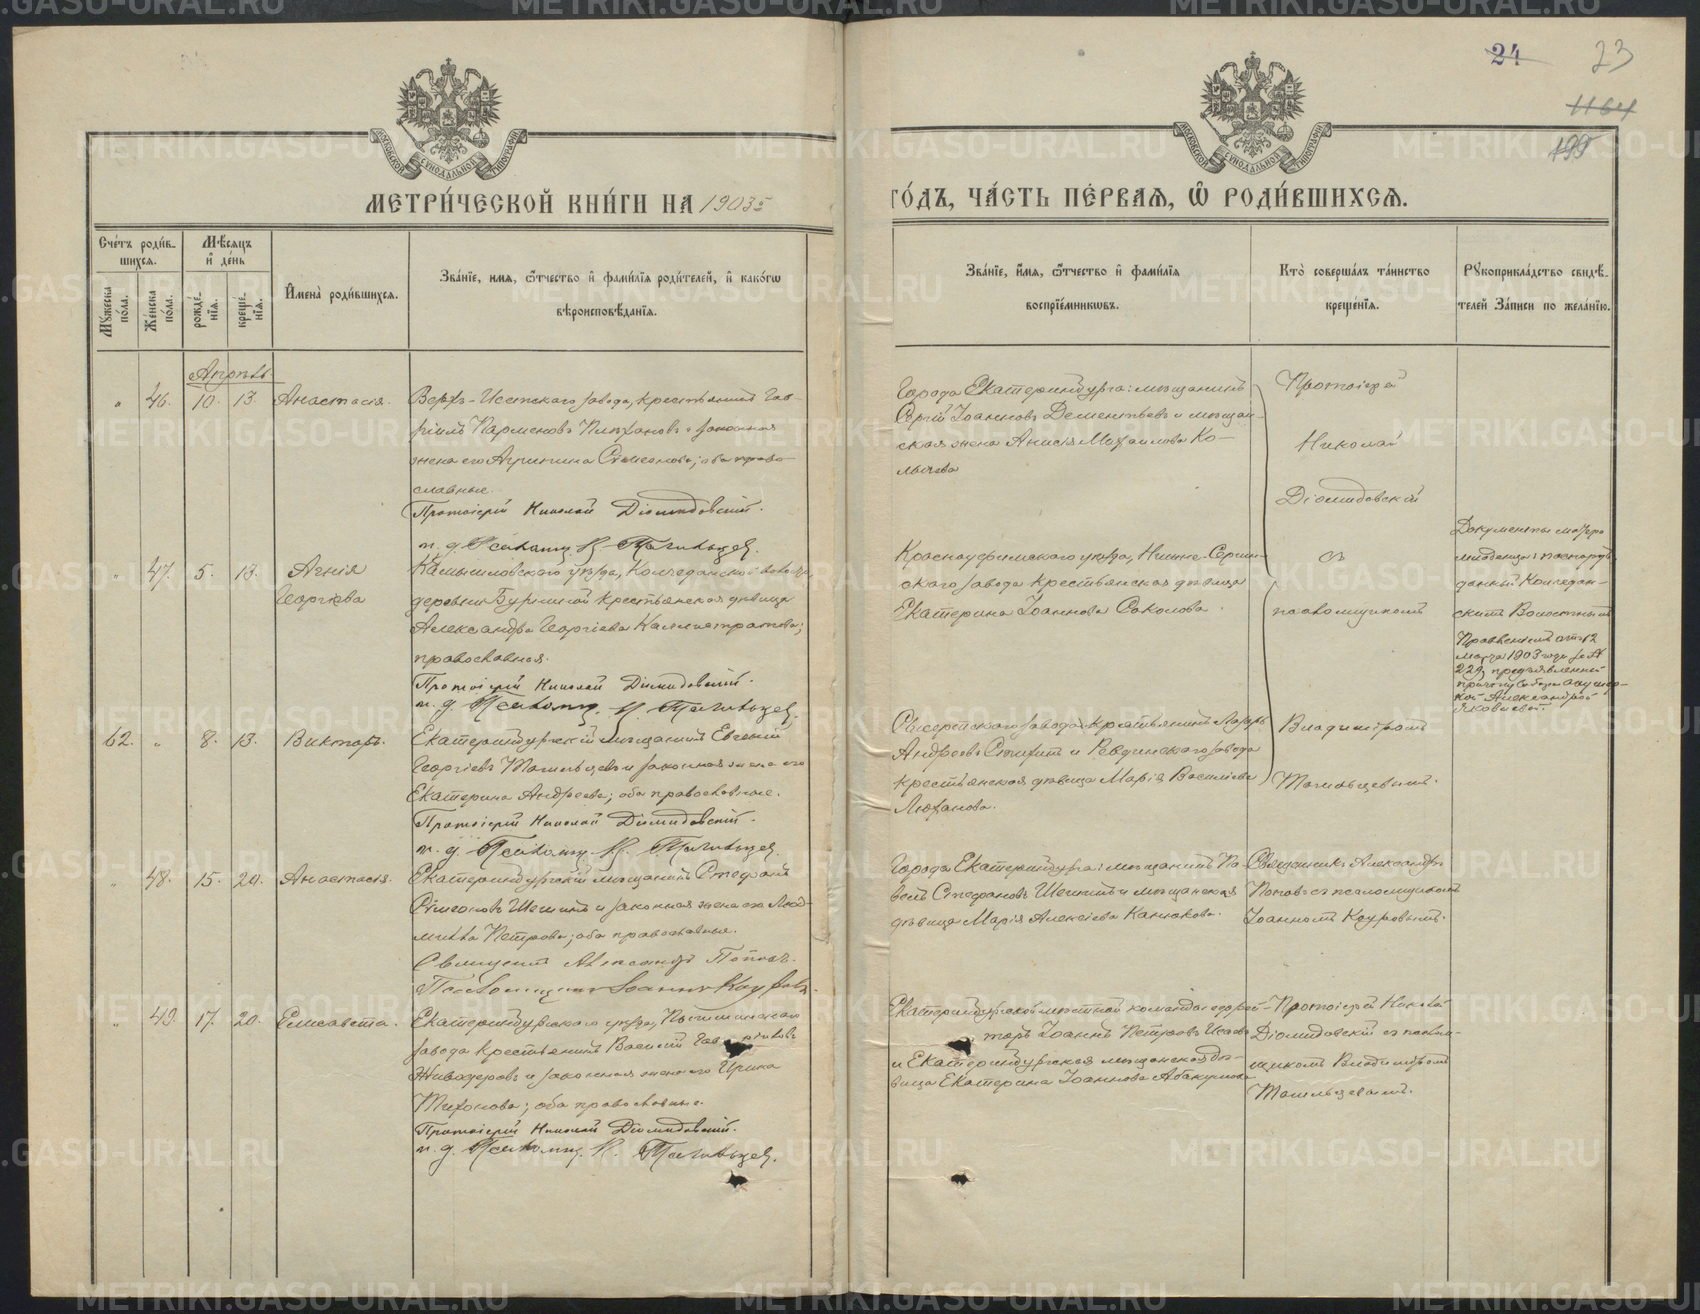 24
23
1164
199
МОСКОВСКОЙ СѴНОДАЛЬНОЙ ТИПОГРАФІИ
МОСКОВСКОЙ СѴНОДАЛЬНОЙ ТИПОГРАФІИ
МЕТРИ́ЧЕСКОЙ КНИ́ГИ НА 1903 ГО́ДЪ, ЧА́СТЬ ПЕ́РВАЯ, Ѡ҆ РОДИ́ВШИХСЯ.
Сче́тъ роди́в-
шихся.
Мꙋжеска по́ла.
Же́нска по́ла.
Мѣ́сяцъ
и҆ де́нь
рожде́-
нїя.
креще́-
нїя.
И҆мена̀ роди́вшихся.
Зва́нїе, имя, ѻ҆́тчество и҆ фами́лїѧ роди́телей, и҆ како́гѡ
вѣроисповѣ́данїя.
Зва́нїе, и҆́мя, ѻ҆́тчество и҆ фами́лїѧ
воспрїе́мникѡвъ.
Кто̀ соверша́лъ та́инство
креще́нїя.
Рꙋкоприкла́дство свидѣ́-
телей за́писи по жела́нїю.
Апрѣль
" 46. 10. 13. Анастасія.
Верхъ-Исетскаго завода, крестьянинъ Гав-
ріилъ Парменовъ Плѣхановъ и законная
жена его Агрипина Симеонова; оба право-
славные.
Протоіерей Николай Діомидовскій.
и. д. Псаломщ. В. Тагильцев.
Города Екатеринбурга: мѣщанинъ
Сергій Іоанновъ Дементьевъ и мѣщан-
ская жена Анисія Михаилова Ко-
лычева
Протоіерей
Николай
Діомидовскій
съ
псаломщикомъ
Владиміромъ
Тагильцевымъ.
" 47. 5. 13. Агнія
Георгіева
Камышловскаго уѣзда, Колчеданской волости,
деревни Бурниной крестьянская дѣвица
Александра Георгіева Каллистратова;
православная.
Протоіерей Николай Діомидовскій.
и. д. Псаломщ. В. Тагильцев.
Красноуфимскаго уѣзда, Нижне-Сергин-
скаго завода крестьянская дѣвица
Екатерина Іоаннова Соколова.
Документы матери
младенца: паспортъ,
данный Колчедан-
скимъ Волостнымъ
Правленіемъ отъ 12
марта 1903 года за №
229, предъявленной
причту Собора акушер-
кой Александрой
Яковлевой.
62. " 8. 13. Викторъ.
Екатеринбургскій мѣщанинъ Евгеній
Георгіевъ Тагильцевъ и законная жена его
Екатерина Андреева; оба православные.
Протоіерей Николай Діомидовскій.
и. д. Псаломщ. В. Тагильцев.
Сысертскаго завода крестьянинъ Лазарь
Андреевъ и Ревдинскаго завода
крестьянская дѣвица Марія Васильева
Люханова.
" 48. 15. 20. Анастасія.
Екатеринбургскій мѣщанинъ Стефанъ
Симеоновъ Шешинъ и законная жена его Люд-
мила Петрова; оба православные.
Священникъ Александръ Поповъ.
Псаломщикъ Іоаннъ Кауровъ.
Города Екатеринбурга: мѣщанинъ Па-
велъ Стефановъ Шешинъ и мѣщанская
дѣвица Марія Алексіева Канюкова.
Священникъ Александръ
Поповъ съ псаломщикомъ
Іоанномъ Кауровымъ.
" 49. 17. 20. Елисавета.
Екатеринбургскаго уѣзда, Пышминскаго
завода крестьянинъ Василій Гавриловъ
Живодеровъ и законная жена его Ирина
Тихонова; оба православные.
Протоіерей Николай Діомидовскій.
и. д. Псаломщ. В. Тагильцев.
Екатеринбургской мѣстной команды ефрей-
торъ Іоаннъ Петровъ Исаевъ
и Екатеринбургская мѣщанская дѣ-
вица Екатерина Іоаннова Абакумова
Протоіерей Николай
Діомидовскій съ псалом-
щикомъ Владиміромъ
Тагильцевымъ.
METRIKI.GASO-URAL.RU